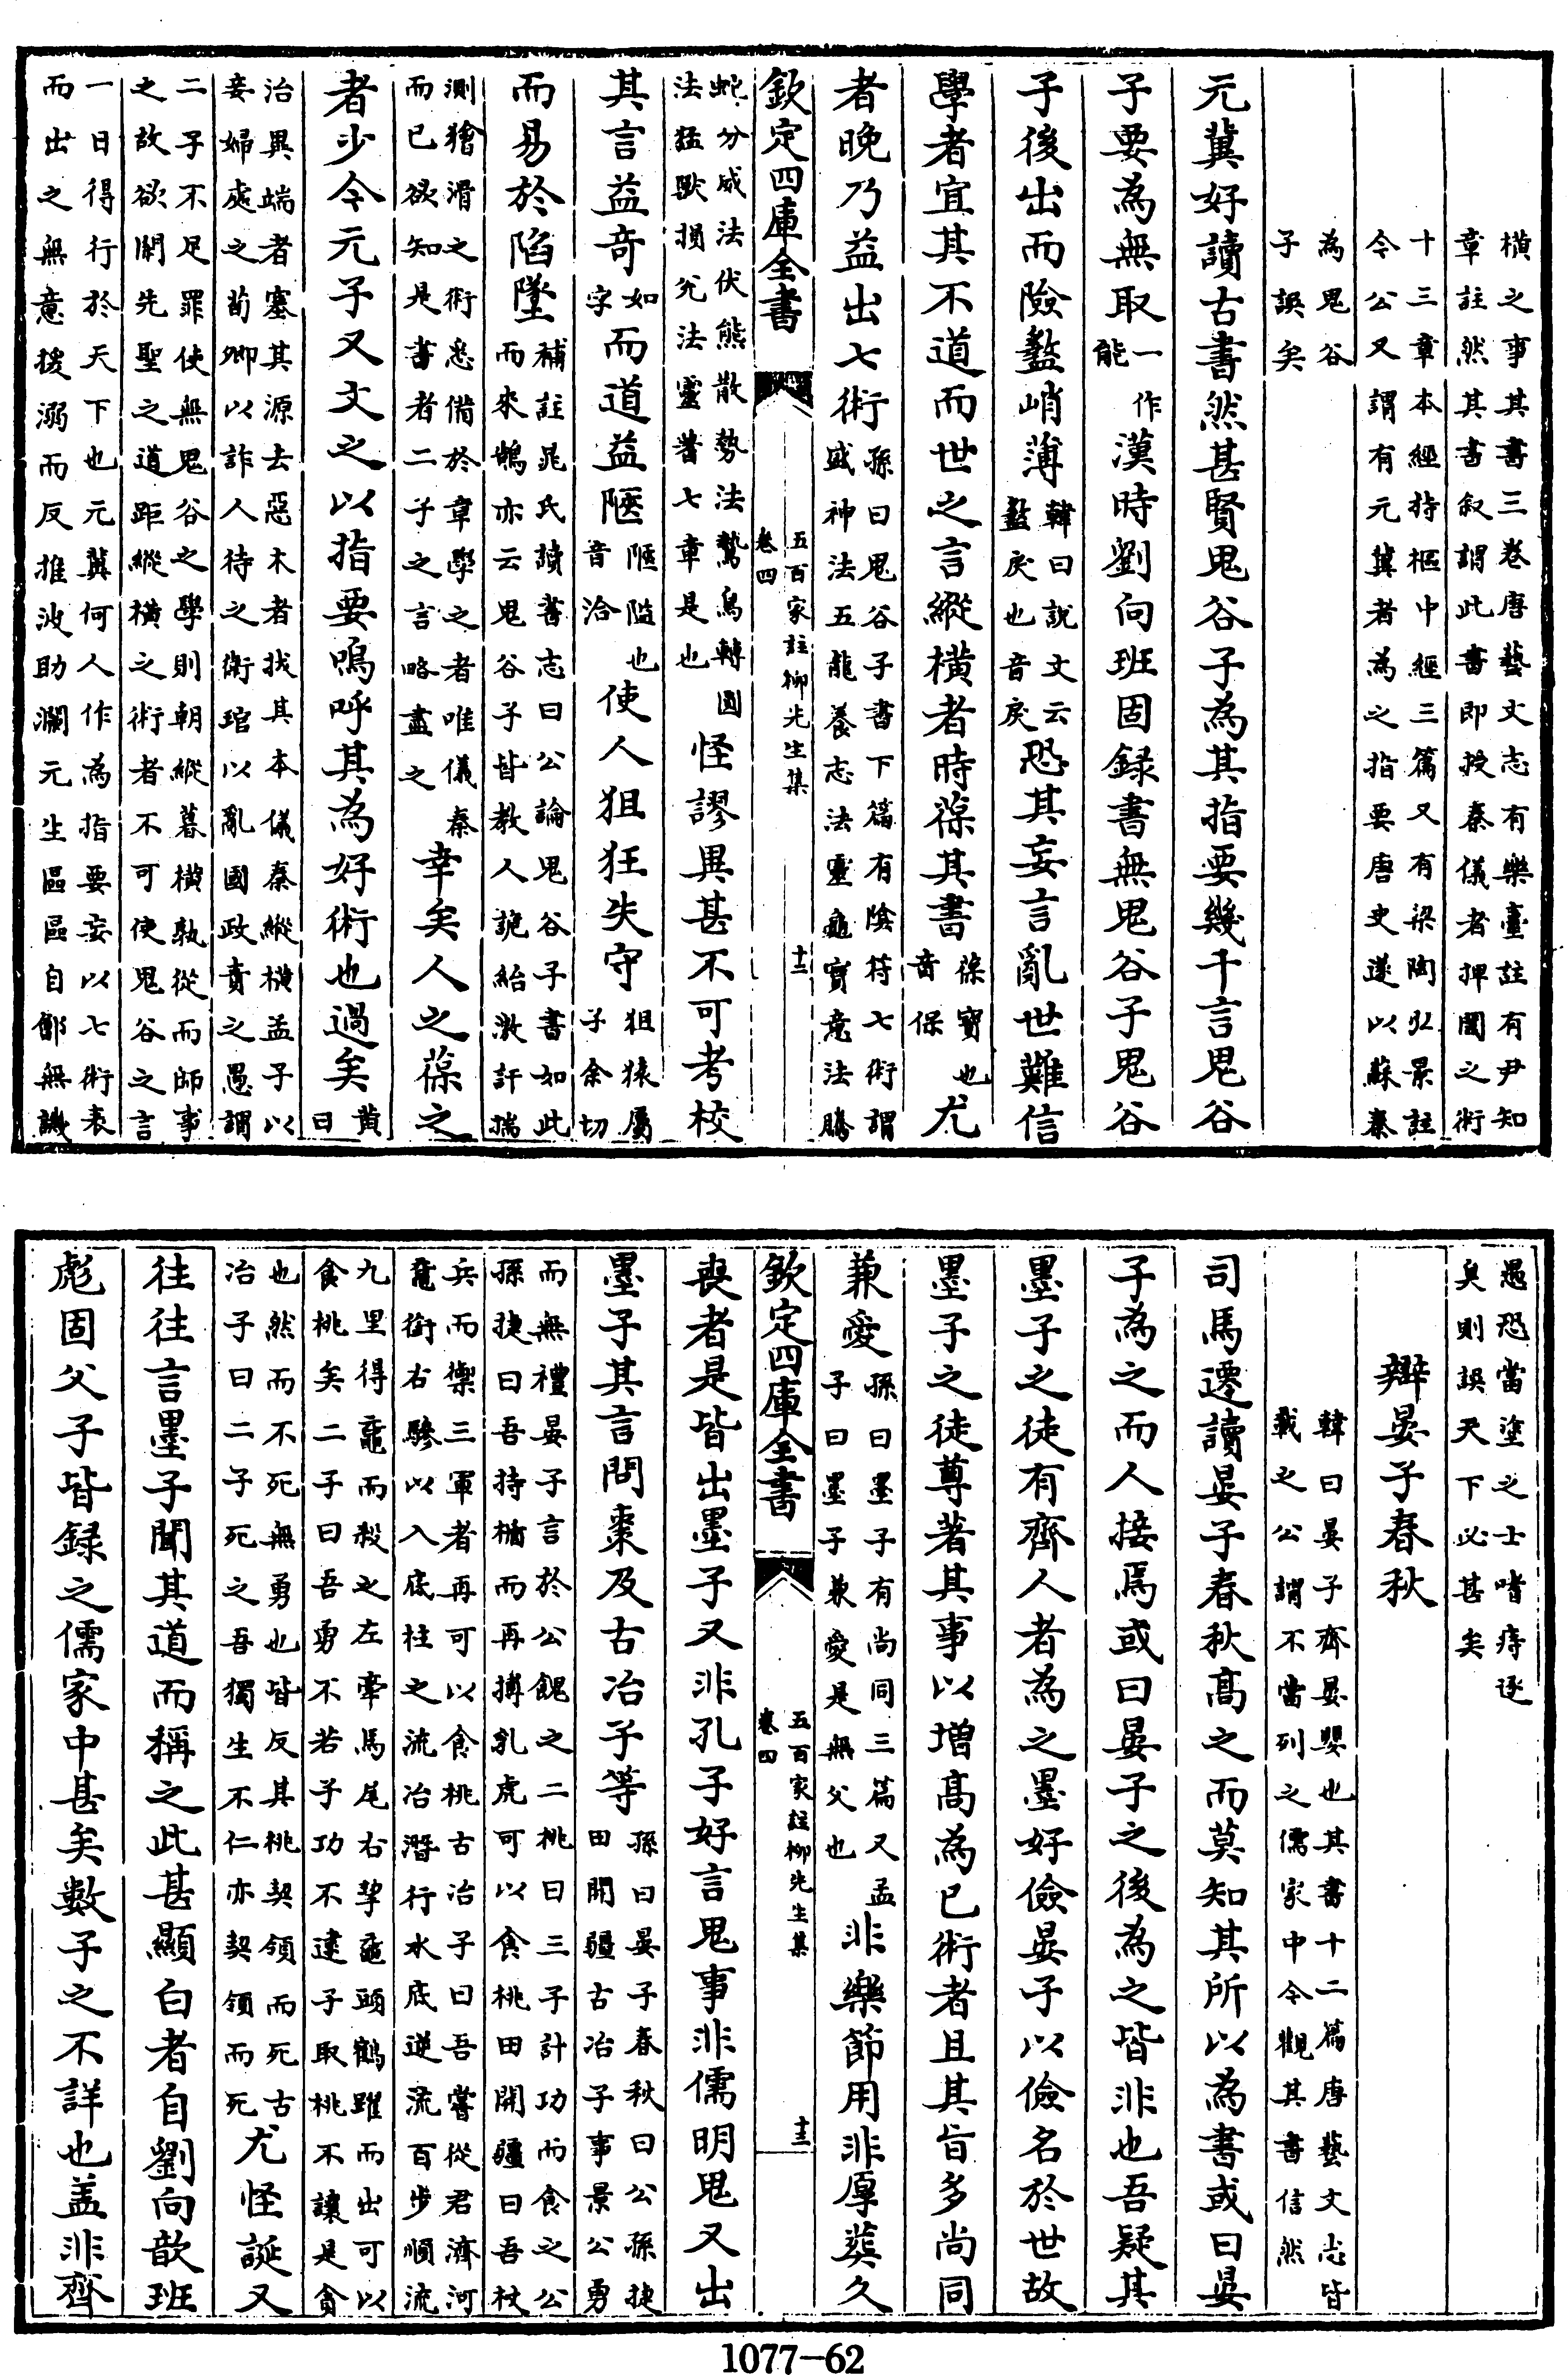 橫之事其書三卷唐藝文志有樂臺註有尹知
章註然其書叙謂此書即授秦儀者捭闔之術
十三章本經持樞中經三篇又有梁陶弘景註
今公又謂有元冀者為之指要唐史遂以蘇秦
為鬼谷
子誤矣
元冀好讀古書然甚賢鬼谷子為其指要幾千言鬼谷
子要為無取一作能漢時劉向班固録書無鬼谷子鬼谷
子後出而險盭峭薄韓曰説文云盭戾也音戾恐其妄言亂世難信
學者宜其不道而世之言縱橫者時葆其書葆寶也音保尤
者晚乃益出七術孫曰鬼谷子書下篇有陰符七術謂盛神法五龍養志法靈龜實意法騰
欽定四庫全書 五百家註柳先生集 卷四 十二
蛇分威法伏熊散勢法鷙鳥轉圓法猛獸損兊法靈蓍七章是也怪謬異甚不可考校
其言益奇如字而道益陿陿隘也音洽使人狙狂失守狙猿屬子余切
而易於陷墜補註晁氏讀書志曰公論鬼谷子書如此而來鵠亦云鬼谷子皆教人詭紿激訐揣
測獪滑之術悉備於章學之者唯儀秦而已欲知是書者二子之言略盡之幸矣人之葆之
者少今元子又文之以指要嗚呼其為好術也過矣黄曰
治異端者塞其源去惡木者拔其本儀秦縱橫孟子以
妾婦處之荀卿以詐人待之術琯以亂國政責之愚謂
二子不足罪使無鬼谷之學則朝縱暮橫孰從而師事
之故欲闢先聖之道距縱橫之術者不可使鬼谷之言
一日得行於天下也元冀何人作為指要妄以七術表
而出之無意援溺而反推波助瀾元生區區自鄶無譏
愚恐當塗之士嗜痔逐
臭則誤天下必甚矣
辯晏子春秋
韓曰晏子齊晏嬰也其書十二篇唐藝文志皆
載之公謂不當列之儒家中今觀其書信然
司馬遷讀晏子春秋高之而莫知其所以為書或曰晏
子為之而人接焉或曰晏子之後為之皆非也吾疑其
墨子之徒有齊人者為之墨好儉晏子以儉名於世故
墨子之徒尊著其事以增高為已術者且其旨多尚同
兼愛孫曰墨子有尚同三篇又孟子曰墨子兼愛是無父也非樂節用非厚葬久
欽定四庫全書 五百家註柳先生集 卷四 十三
喪者是皆出墨子又非孔子好言鬼事非儒明鬼又出
墨子其言問棗及古冶子等孫曰晏子春秋曰公孫捷田開疆古冶子事景公勇
而無禮晏子言於公餽之二桃曰三子計功而食之公
孫捷曰吾持楯而再搏乳虎可以食桃田開疆曰吾杖
兵而禦三軍者再可以食桃古冶子曰吾嘗從君濟河
黿銜右驂以入底柱之流冶潛行水底逆流百步順流
九里得黿而殺之左牽馬尾右挈黿頭鶴躍而出可以
食桃矣二子曰吾勇不若子功不逮子取桃不讓是貪
也然而不死無勇也皆反其桃契領而死古冶子曰二子死之吾獨生不仁亦契領而死尤怪誕又
往往言墨子聞其道而稱之此甚顯白者自劉向歆班
彪固父子皆録之儒家中甚矣數子之不詳也盖非齊
1077—62